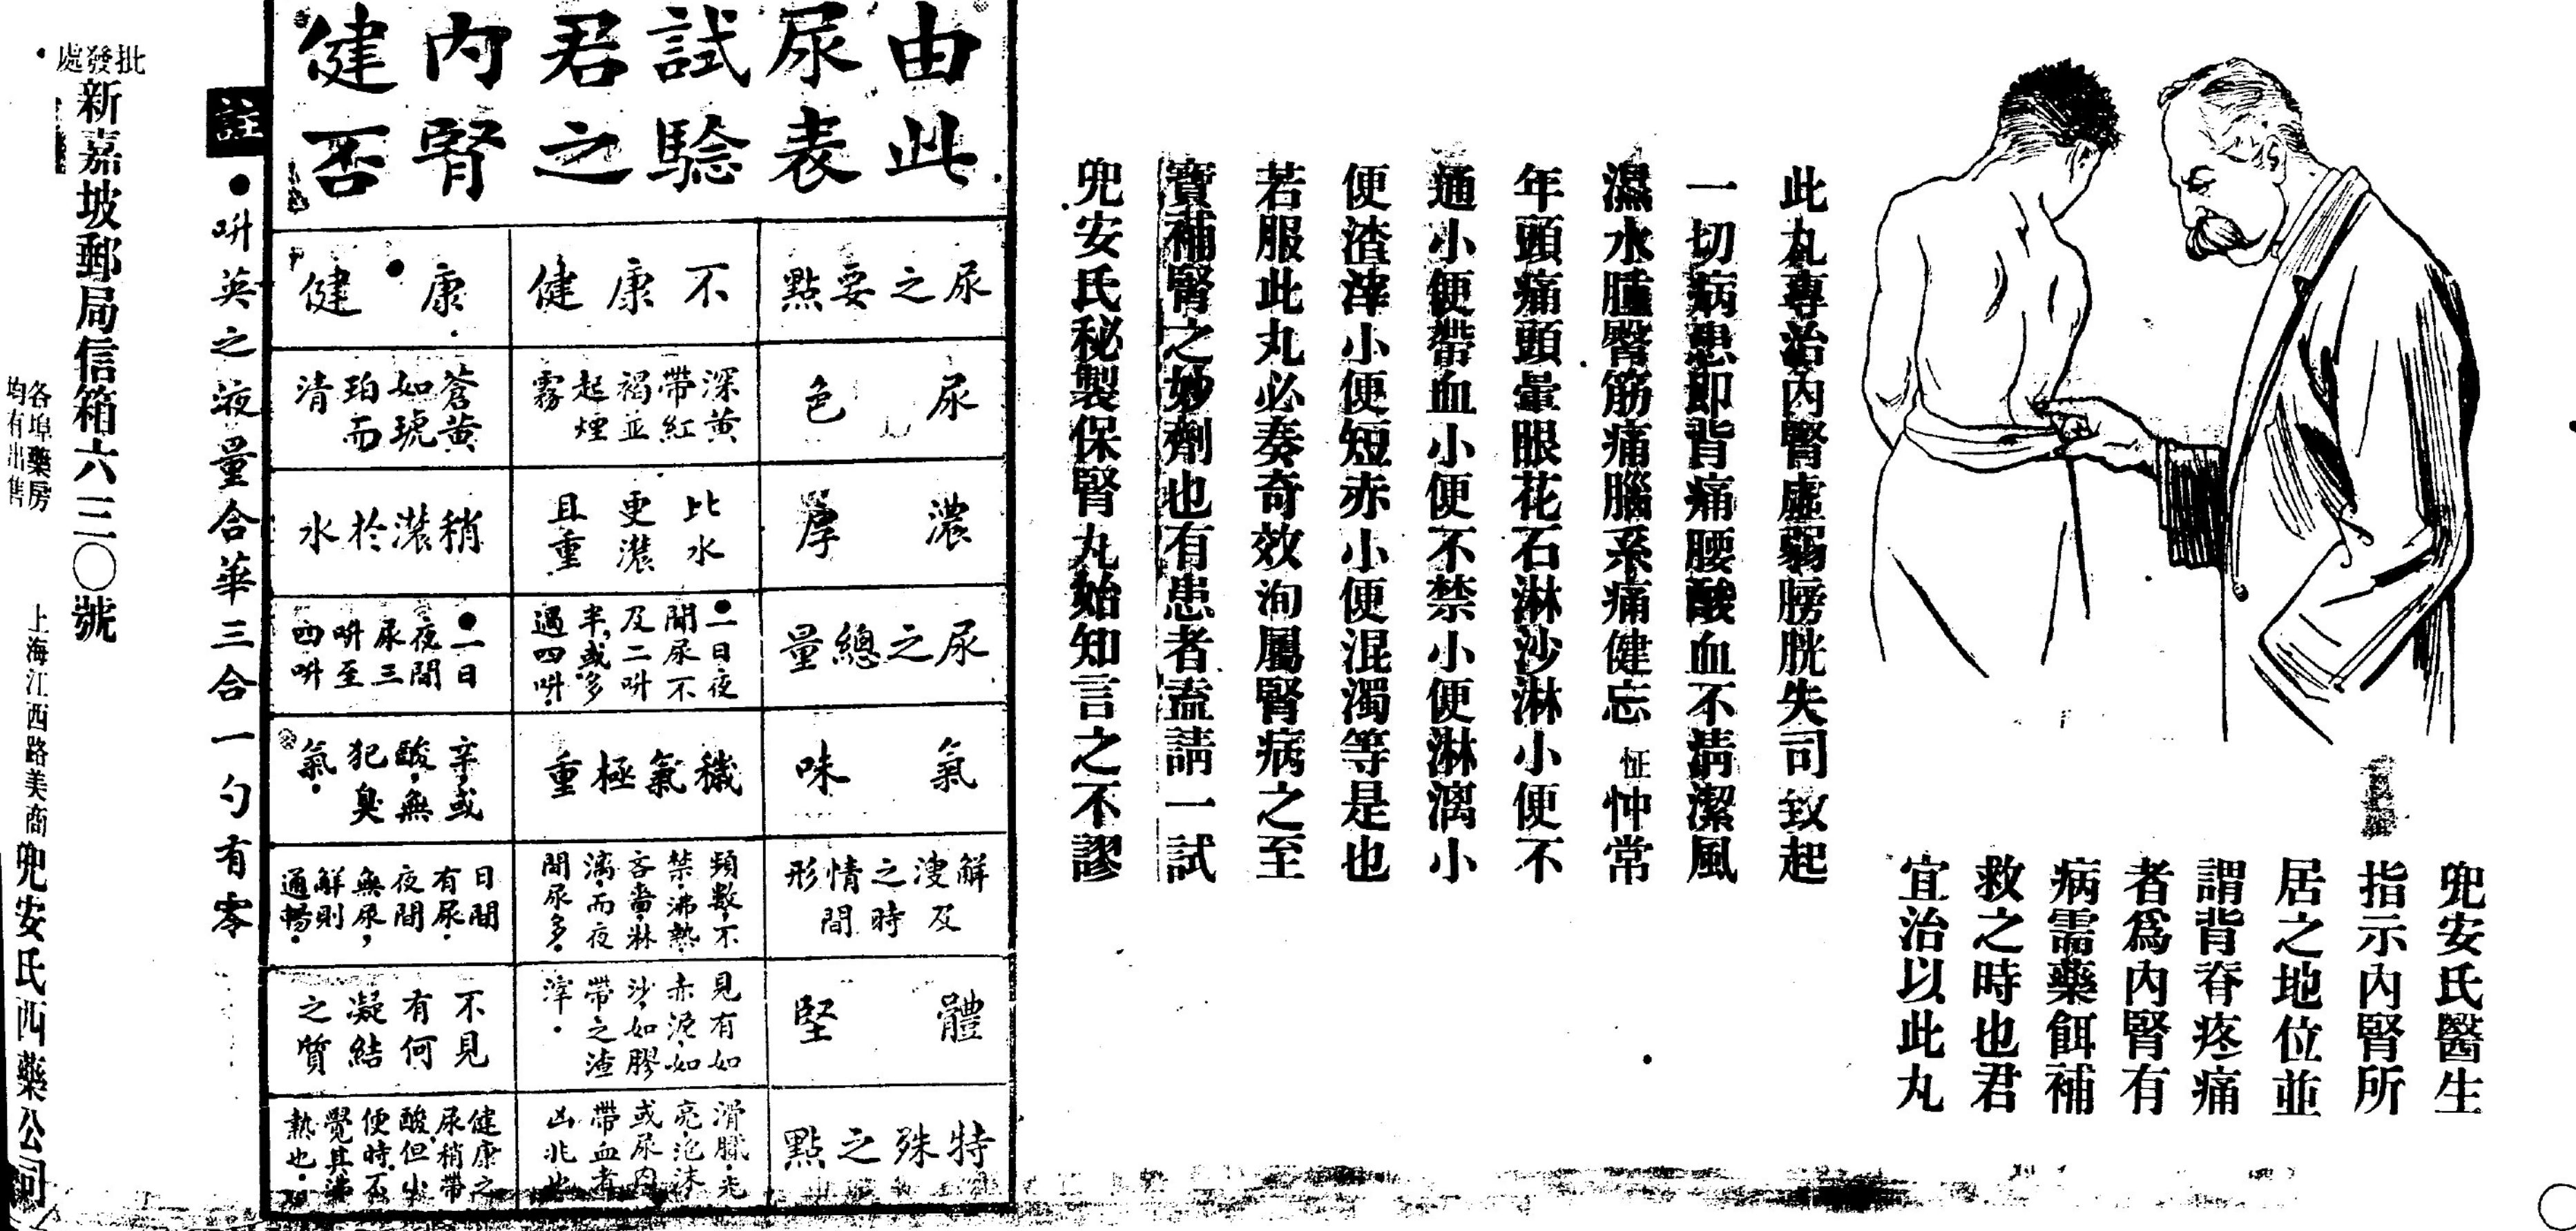 兜安氏醫生
指示內腎所
居之地位並
謂背脊疼痛
者爲內腎有
病需藥餌補
救之時也君
宜治以此丸
此丸專治內腎虛弱膀胱失司致起
一切病患卽背痛腰酸血不清潔風
濕水腫臀筋痛腦系痛健忘怔忡常
年頭痛頭暈眼花石淋沙淋小便不
通小便帶血小便不禁小便淋漓小
便渣滓小便短赤小便混濁等是也
若服此丸必奏奇效洵屬腎病之至
寶補腎之妙劑也有患者盍請一試
兜安氏秘製保腎丸始知言之不謬
由此
尿表
試驗
君之
內腎
健否
尿之要點
不康健
康健
尿色
深黃
帶紅
褐並
起煙
霧
蒼黃
如琥
珀而
清
濃厚
比水
更濃
且重
稍濃於水
尿之總量
一日夜
間尿不
及二呏
半或多
過四呏
一日
夜間
尿三
呏至
四呏
氣味
穢氣極重
辛或
酸無
犯臭
氣
解溲之情形
及時間
頻數不
禁沸熱
吝嗇淋
漓而夜
間尿多
日間
有尿
夜間
無尿
解則
通暢
體堅
見有如
赤泥如
沙如膠
帶之渣
滓
不見
有何
凝結
之質
特殊之點
滑膩光
亮泡沫
或尿內
帶血者
凶兆也
健康之
尿稍帶
酸但小
便時不
覺其沸
熱也
註●呏英之液量合華三合一勺有零
批發處
新嘉坡郵局信箱六三〇號
各埠藥房
均有出售
上海江西路美商兜安氏西藥公司